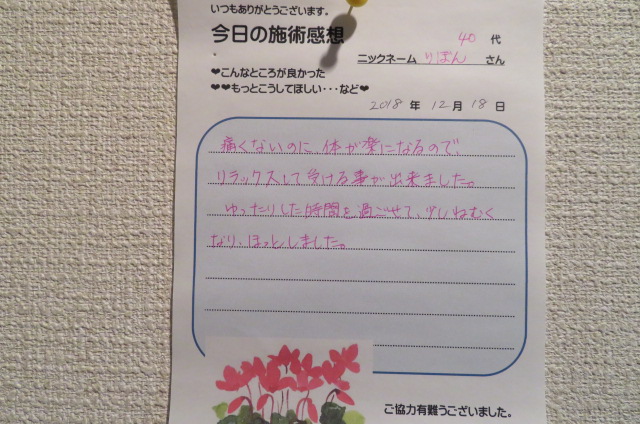 いつもありがとうございます。
今日の施術感想
40 代
ニックネーム りぼん さん
❤こんなところが良かった
❤❤もっとこうしてほしい・・・など❤
2018 年 12 月 18 日
痛くないのに、体が楽になるので、
リラックスして受ける事が出来ました。
ゆったりした時間を過ごせて、少しねむく
なり、ほっとしました。
ご協力有難うございました。